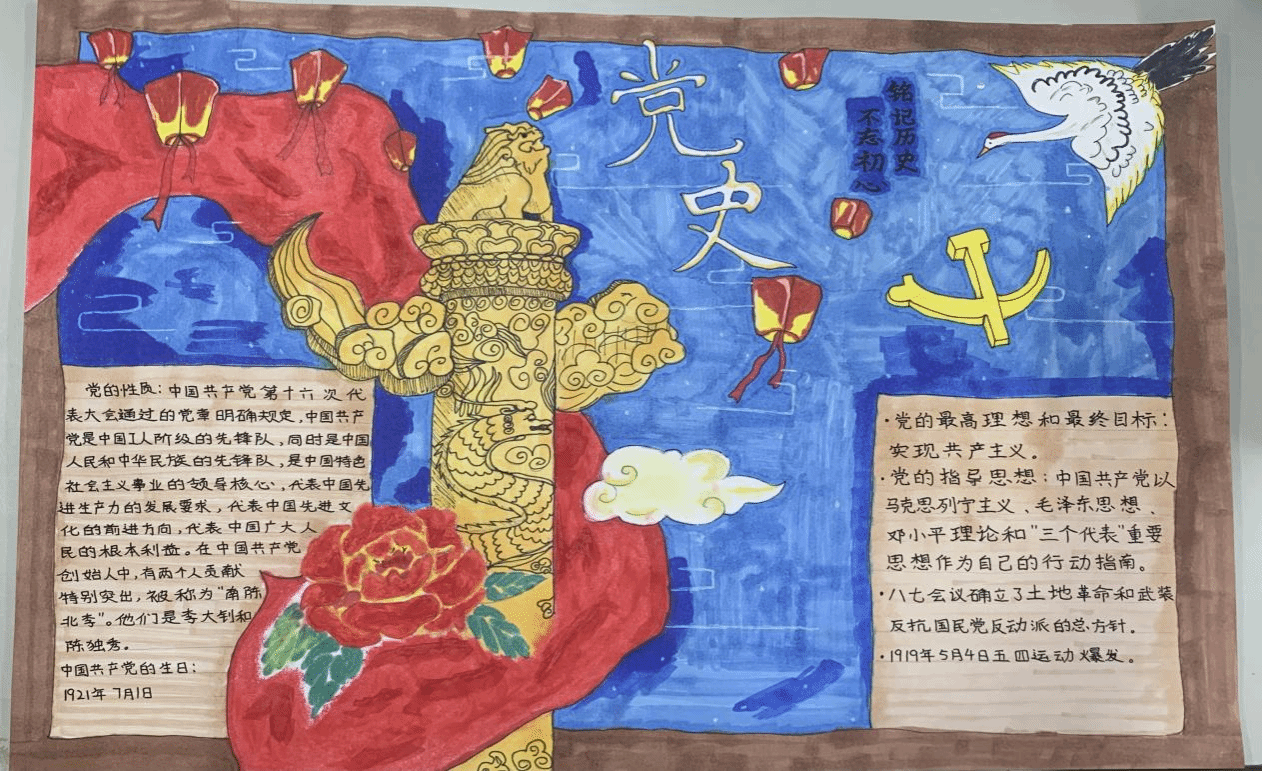 党史
铭记历史
不忘初心
党的性质：中国共产党第十六次代
表大会通过的党章明确规定，中国共产
党是中国工人阶级的先锋队，同时是中国
人民和中华民族的先锋队，是中国特色
社会主义事业的领导核心，代表中国先
进生产力的发展要求，代表中国先进文
化的前进方向，代表中国广大人
民的根本利益。在中国共产党
创始人中，有两个人贡献
特别突出，被称为"南陈
北李"。他们是李大钊和
陈独秀。
中国共产党的生日：
1921年7月1日
·党的最高理想和最终目标：
实现共产主义。
·党的指导思想：中国共产党以
马克思列宁主义、毛泽东思想、
邓小平理论和"三个代表"重要
思想作为自己的行动指南。
·八七会议确立了土地革命和武装
反抗国民党反动派的总方针。
·1919年5月4日五四运动爆发。